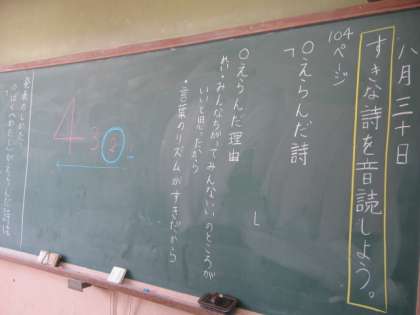 八月三十日
すきな詩を音読しよう。
104ページ
○えらんだ詩
「
」
○えらんだ理由
れい・みんなちがってみんないいのところが
いいと思ったから
・言葉のリズムがすきだから
4 3 2
発表のしかた